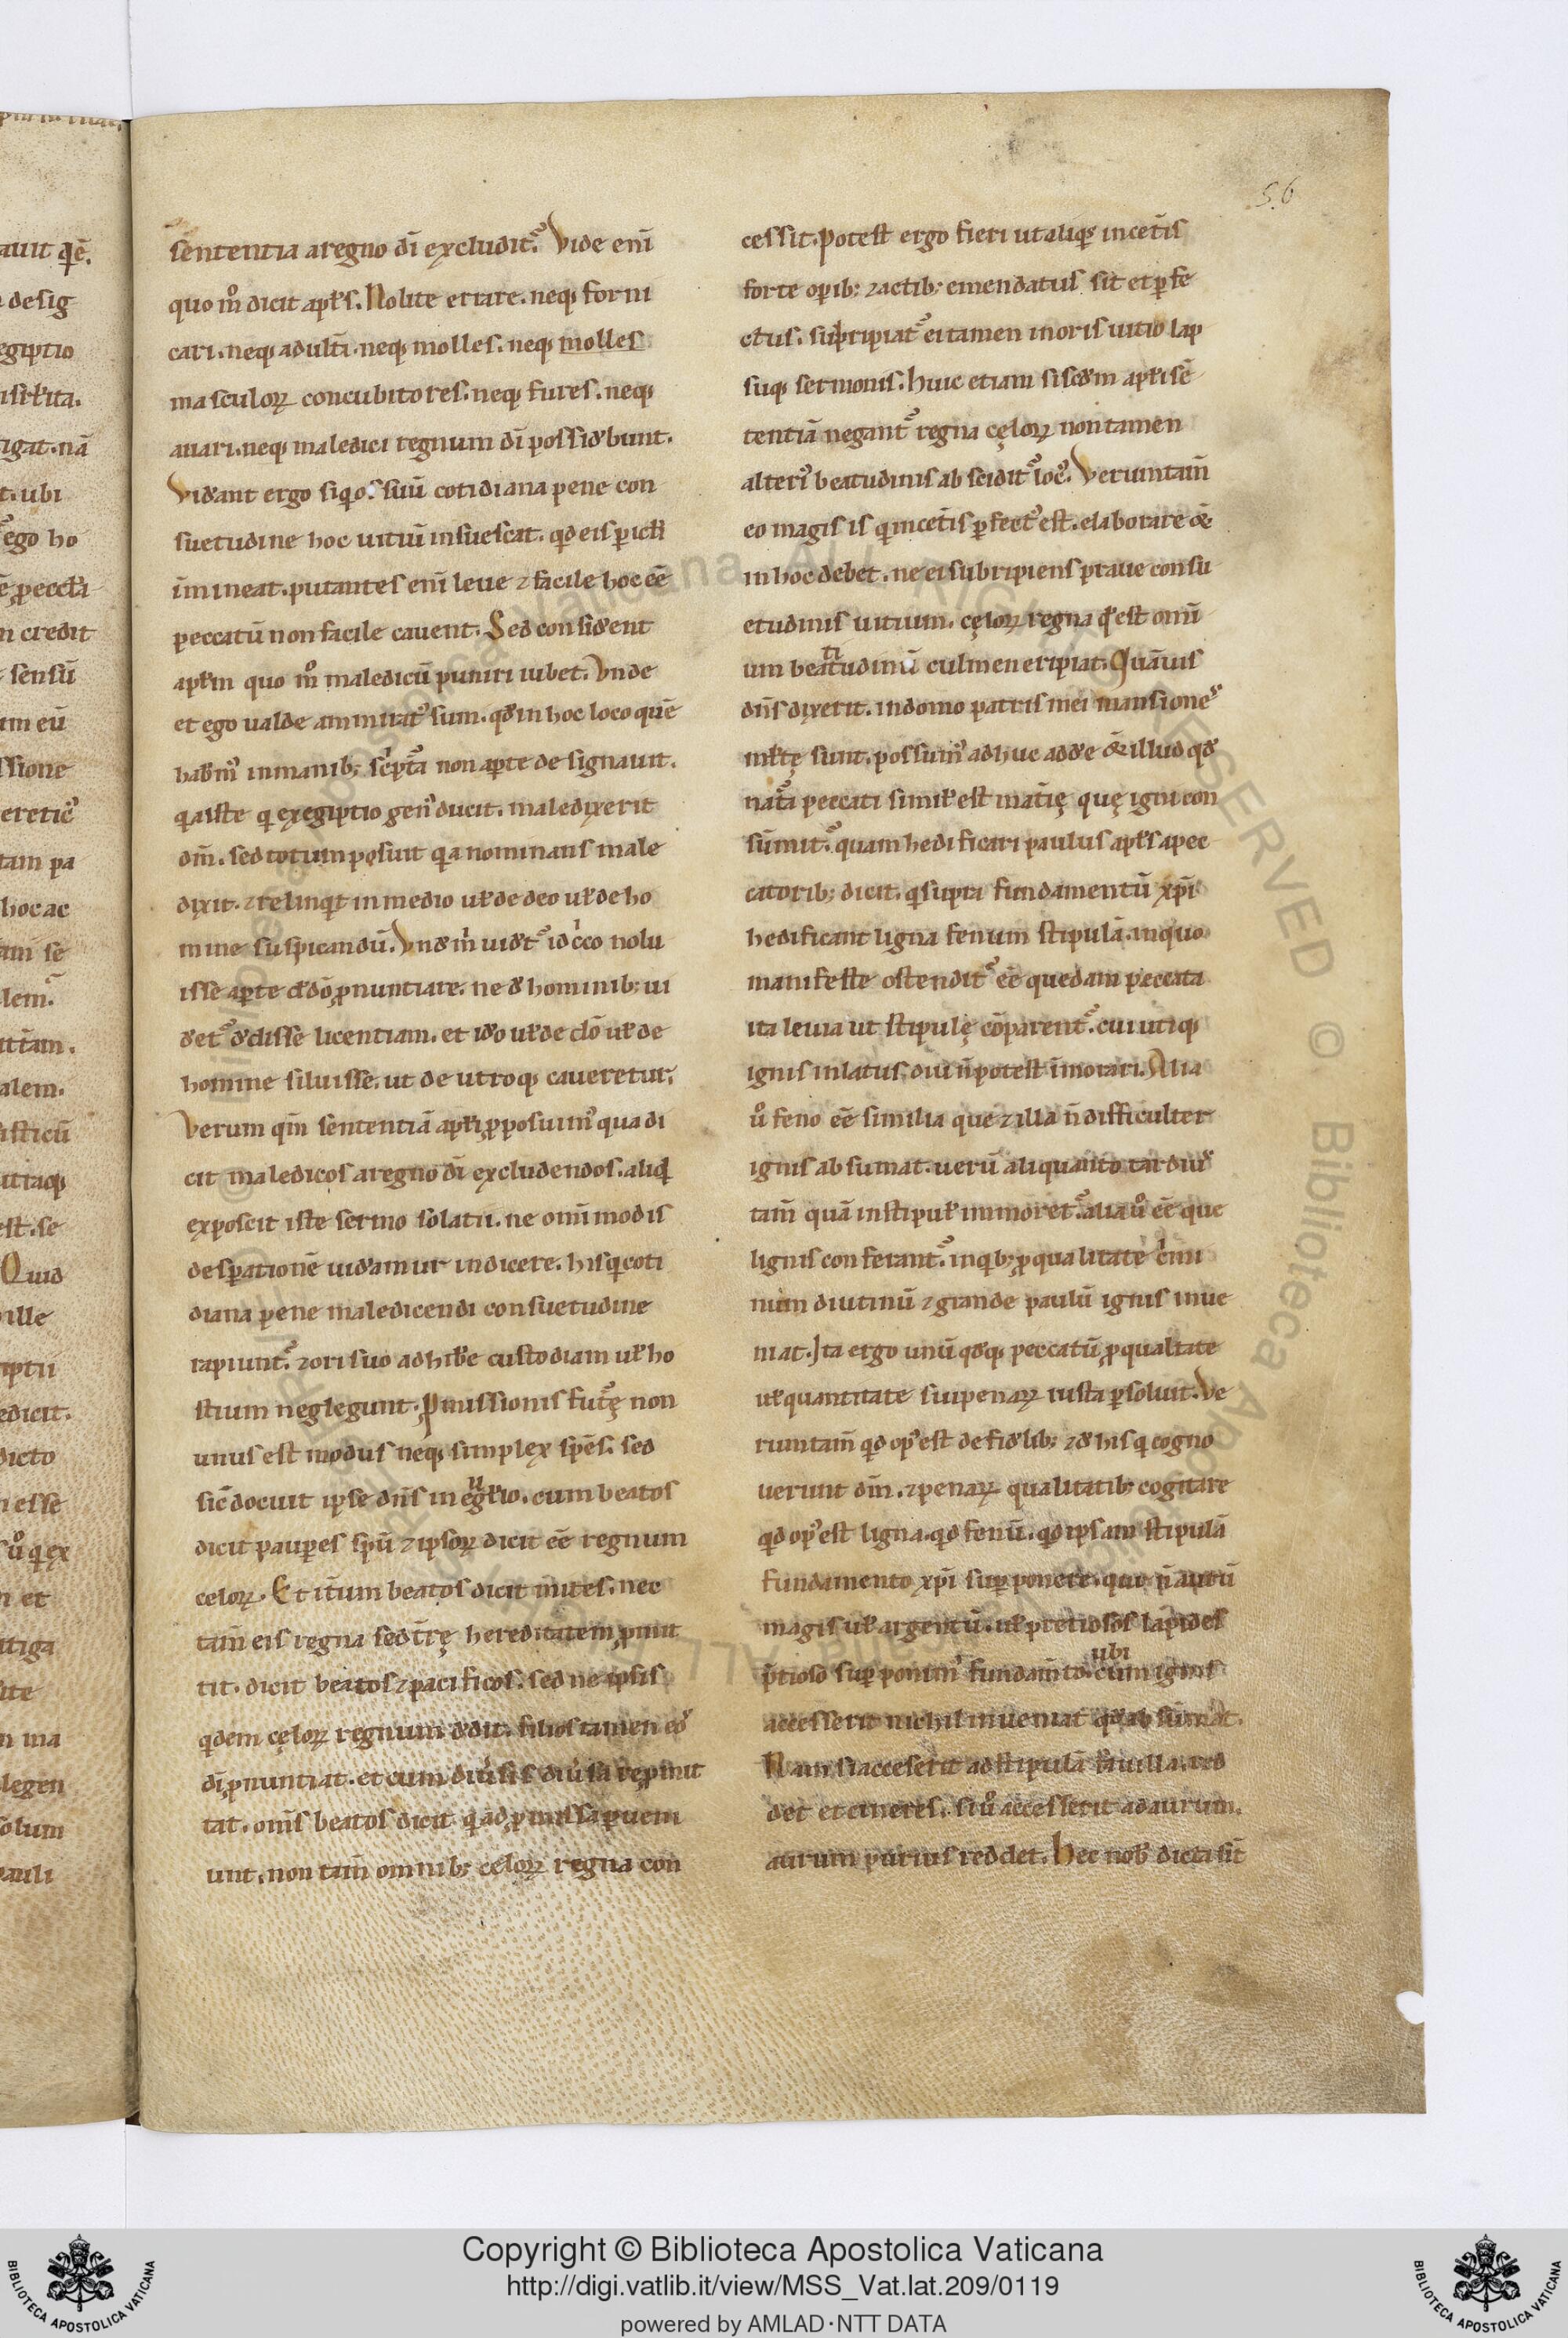 sententia a regno dī excludit᷑. Vide enī
quo m̊ dicit apłs. Nolite errare. neq; forni
cari. neq; adulťi. neq; molles. neq; molles
masculoꝝ concubitores. neq; fures. neq;
auari. neq; maledici regnum dī possid̾bunt.
Vid̾ant ergo si q̇os suū cotidiana pene con
suetudine hoc uitiū insuescat. qd eis ꝑicłi
īmineat. putantes enī leue ⁊ facile hoc eē
peccatū non facile cauent. Sed consid̾ent
apłm quo m̊ maledicū puniri iubet. Vnde
et ego ualde ammirat᷒ sum. qd̾ in hoc loco quē
habem᷒ in manib; sc̾pťa non aꝑte designauit.
q̇a iste q̇ ex egiptio gen᷒ ducit. maledixerit
dm̄. sed totum posuit q̇a nominans male
dixit. ⁊ relinq̇t in medio uł de deo uł de ho
mine suspicandū. Vnd̾ m̓ uid̾t᷑ idc̓co nolu
isse aꝑte d̾ dō ꝓnuntiare. ne d̾ hominib; ui
d̾et᷑ d̾disse licentiam. et id̾o uł de dō uł de
homine siluisse. ut de utroq; caueretur.
Verum qm̄ sententiā apłi ꝓposuim᷒ qua di
cit maledicos a regno dī excludendos. aliq̇d
exposcit iste sermo solatii. ne om̄imodis
desꝑationē uid̾amur indicere. his q̇ coti
diana pene maledicendi consuetudine
rapiunt᷑. ⁊ ori suo adhib̾e custodiam uł ho
stium neglegunt. ꝓmissionis fuťę non
unus est modus neq; simplex spēs. sed
sic̄ docuit ipse dn̄s in eu̾gło. cum beatos
dicit pauꝑes spū ⁊ ipsoꝝ dicit eē regnum
celoꝝ. Et iťum beatos dicit mites. nec
tam̄ eis regna sed ťrę hereditatem ꝓmit
tit. dicit beatos ⁊ pacificos. sed ne ipsis
q̇dem cęloꝝ regnum d̾dit. filios tamen eos
dī ꝓnuntiat. et cum diu̾sis diu̾sa reꝓmit
tat. om̄s beatos dicit q̇ ad ꝓmissa ꝑueni
unt. non tam̄ omnib; celoꝝ regna con
56
cessit. Potest ergo fieri ut aliq̇s in cet̾is
forte oꝑib; ⁊ actib; emendatus sit et ꝑfe
ctus. surripiat᷑ ei tamen in oris uitio lap
suq; sermonis. Huic etiam si scd̾m apłi sē
tentiā negant᷑ regna cęloꝝ non tamen
alteri᷒ beatudinis abscidit᷑ loc᷒. Veruntam̄
eo magis is q̇ in cet̾is ꝑfect᷒ est. elaborare &
in hoc debet. ne ei subripiens praue consu
etudinis uitium. cęloꝝ regna qd̾ est om̄i
um beatitudinū culmen eripiat. Quāuis
dn̄s dixerit. in domo patris mei mansiones
młtę sunt. possum᷒ adhuc add̾e & illud qd̾
naťa peccati simił est maťię quę igni con
sūmit᷑. quam hedificari paulus apłs a pec
catorib; dicit. q̇ supra fundamentū xp̄i
hedificant ligna fenum stipulā. in quo
manifeste ostendit᷑ eē quedam peccata
ita leuia ut stipulę cōparent᷑. cui utiq;
ignis inlatus. diu n̄ potest īmorari. Alia
u̾o feno eē similia que ⁊ illa n̄ difficulter
ignis absumat. uerū aliquanto tardius
tam̄ quā in stipuł immoret᷑. alia u̾o eē que
lignis conferant᷑. in q̇b; ꝓ qualitate c̓mi
num diutinū ⁊ grande paulū ignis inue
niat. Ita ergo unū qd̾q; peccatū ꝓ qualitate
uł quantitate sui penaꝝ iusta ꝑsoluit. Ve
runtam̄ qd op᷒ est de fid̾lib; ⁊ d̾ his q̇ cogno
uerunt dm̄. ⁊ penaꝝ qualitatib; cogitare
qd op᷒ est ligna. qd fenū. qd ipsam stipulā
fundamento xp̄i suꝑponere. que n̄ aurū
magis uł argentū. uł pretiosos lapides
p̄tioso suꝑponim᷒ fundam̄to. ubi cum ignis
accesserit nichil inueniat qd̾ absūmat.
Nam si acceserit ad stipulā fauilla. red
det et cineres. si u̾o accesserit ad aurum.
aurum purius reddet. Hec nob̾ dicta sīt
Copyright © Biblioteca Apostolica Vaticana
http://digi.vatlib.it/view/MSS_Vat.lat.209/0119
powered by AMLAD·NTT DATA